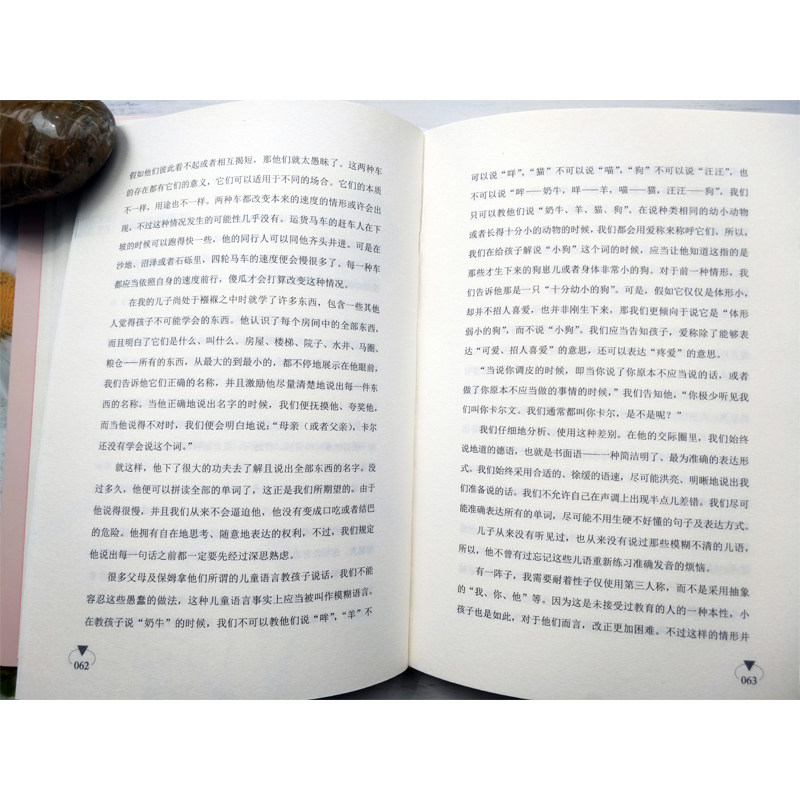 假如他们彼此看不起或者相互揭短，那他们就太愚昧了。这两种车
的存在都有它们的意义，它们可以适用于不同的场合。它们的本质
不一样，用途也不一样。两种车都改变本来的速度的情形或许会出
现，不过这种情况发生的可能性几乎没有。运货马车的赶车人在下
坡的时候可以跑得快一些，他的同行人可以同他齐头并进。可是在
沙地、沼泽或者石砾里，四轮马车的速度便会慢很多了。每一种车
都应当依照自身的速度前行，傻瓜才会打算改变这种情况。
在我的儿子尚处于襁褓之中时就学了许多东西，包含一些其他
人觉得孩子不可能学会的东西。他认识了每个房间中的全部东西，
而且明白了它们是什么、叫什么。房屋、楼梯、院子、水井、马圈、
粮仓——所有的东西，从最大的到最小的，都不停地展示在他眼前，
我们告诉他它们正确的名称，并且激励他尽量清楚地说出每一件东
西的名称。当他正确地说出名字的时候，我们便抚摸他、夸奖他。
而当他说得不对时，我们便会明白地说：“母亲（或者父亲），卡尔
还没有学会说这个词。”
就这样，他下了很大的功夫去了解且说出全部东西的名字。没
过多久，他便可以拼读全部的单词了，这正是我们所期望的。由于
他说得很慢，并且我们从来不会逼迫他，他没有变成口吃或者结巴
的危险。他拥有自在地思考、随意地表达的权利，不过，我们规定
他说出每一句话之前都一定要先经过深思熟虑。
很多父母及保姆拿他们所谓的儿童语言教孩子说话，我们不能
容忍这些愚蠢的做法，这种儿童语言事实上应当被叫作模糊语言。
在教孩子说“奶牛”的时候，我们不可以教他们说“哞”，“羊”不
062
可以说“咩”，“猫”不可以说“喵”，“狗”不可以说“汪汪”，也
不可以说“哞——奶牛，咩——羊，喵——猫，汪汪——狗”，我们
只可以教他们说“奶牛、羊、猫、狗”。在说种类相同的幼小动物
或者长得十分小的动物的时候，我们都会用爱称来称呼它们。所以，
我们在给孩子解说“小狗”这个词的时候，应当让他知道这指的是
那些才生下来的狗崽儿或者身体非常小的狗。对于前一种情形，我
们告诉他那是一只“十分幼小的狗”。可是，假如它仅仅是体形小，
却并不招人喜爱，也并非刚生下来，那我们更倾向于说它是“体形
弱小的狗”，而不说“小狗”。我们应当告知孩子，爱称除了能够表
达“可爱、招人喜爱”的意思，还可以表达“疼爱”的意思。
“当说你调皮的时候，即当你说了你原本不应当说的话，或者
做了你原本不应当做的事情的时候，”我们告知他，“你极少听见我
们叫你卡尔文。我们通常都叫你卡尔，是不是呢？”
我们仔细地分析、使用这种差别。在他的交际圈里，我们始终
说地道的德语，也就是书面语——一种简洁明了、最为准确的表达形
式。我们始终采用合适的、徐缓的语速，尽可能洪亮、明晰地说出我
们准备说的话。我们不允许自己在声调上出现半点儿差错。我们尽可
能准确表达所有的单词，尽可能不用生硬不好懂的句子及表达方式。
儿子从来没有听见过，也从来没有说过那些模糊不清的儿语，
所以，他不曾有过忘记这些儿语重新练习准确发音的烦恼。
有一阵子，我需要耐着性子仅使用第三人称，而不是采用抽象
的“我、你、他”等。因为这是未接受过教育的人的一种本性。小
孩子也是如此，对于他们而言，改正更加困难。不过这样的情形并
063